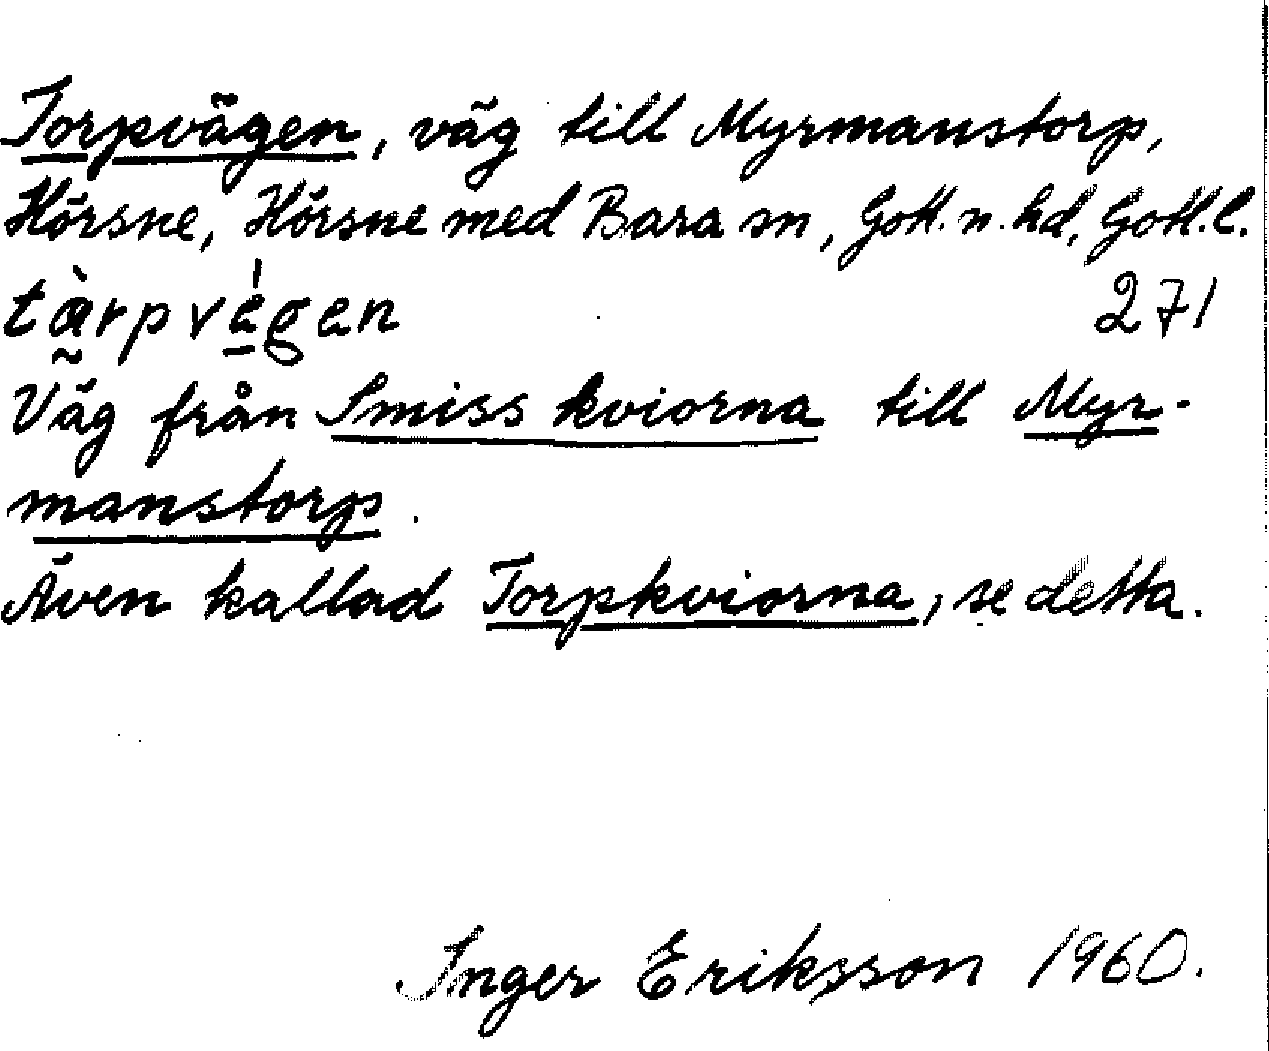 Torpvägen, väg till Myrmanstorp,
Hörsne, Hörsne med Bara sn, Gotl. n. hd, Gotl. l.
tà̰rpvé̱gen 271
Väg från Smiss kviorna till Myr-
manstorp.
Även kallad Torpkviorna, se detta.
Inger Eriksson 1960.